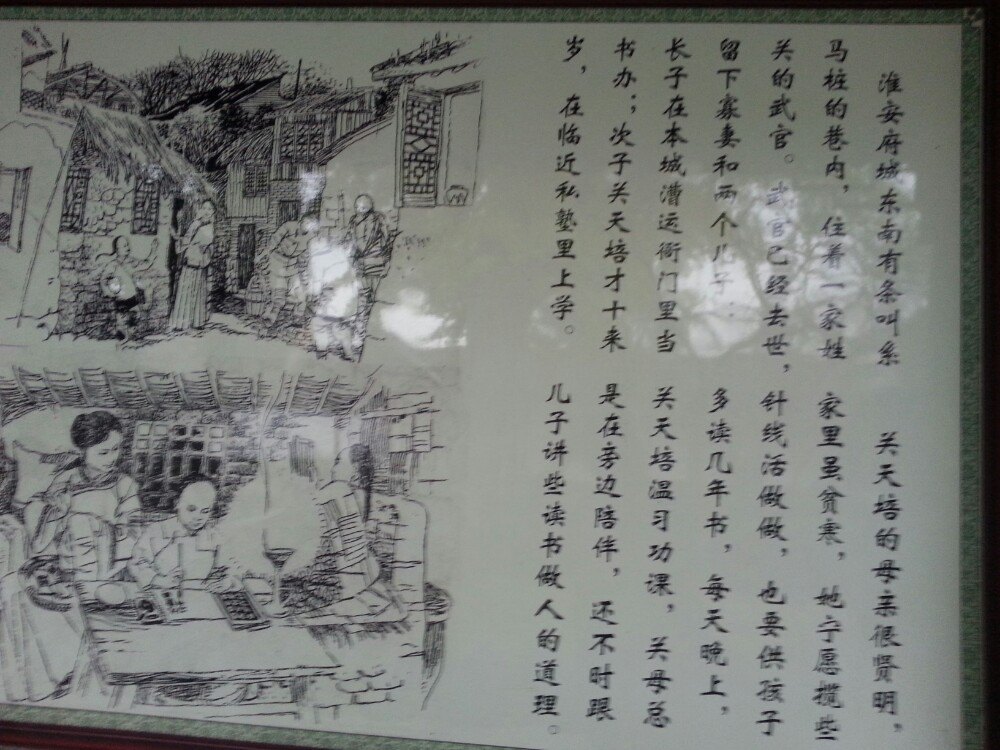 淮安府城东南有条叫系
马桩的巷内，住着一家姓
关的武官。武官已经去世，
留下寡妻和两个儿子.
长子在本城漕运衙门里当
书办；次子关天培才十来
岁，在临近私塾里上学。
关天培的母亲很贤明，
家里虽贫寒，她宁愿揽些
针线活做做，也要供孩子
多读几年书，每天晚上，
关天培温习功课，关母总
是在旁边陪伴，还不时跟
儿子讲些读书做人的道理。